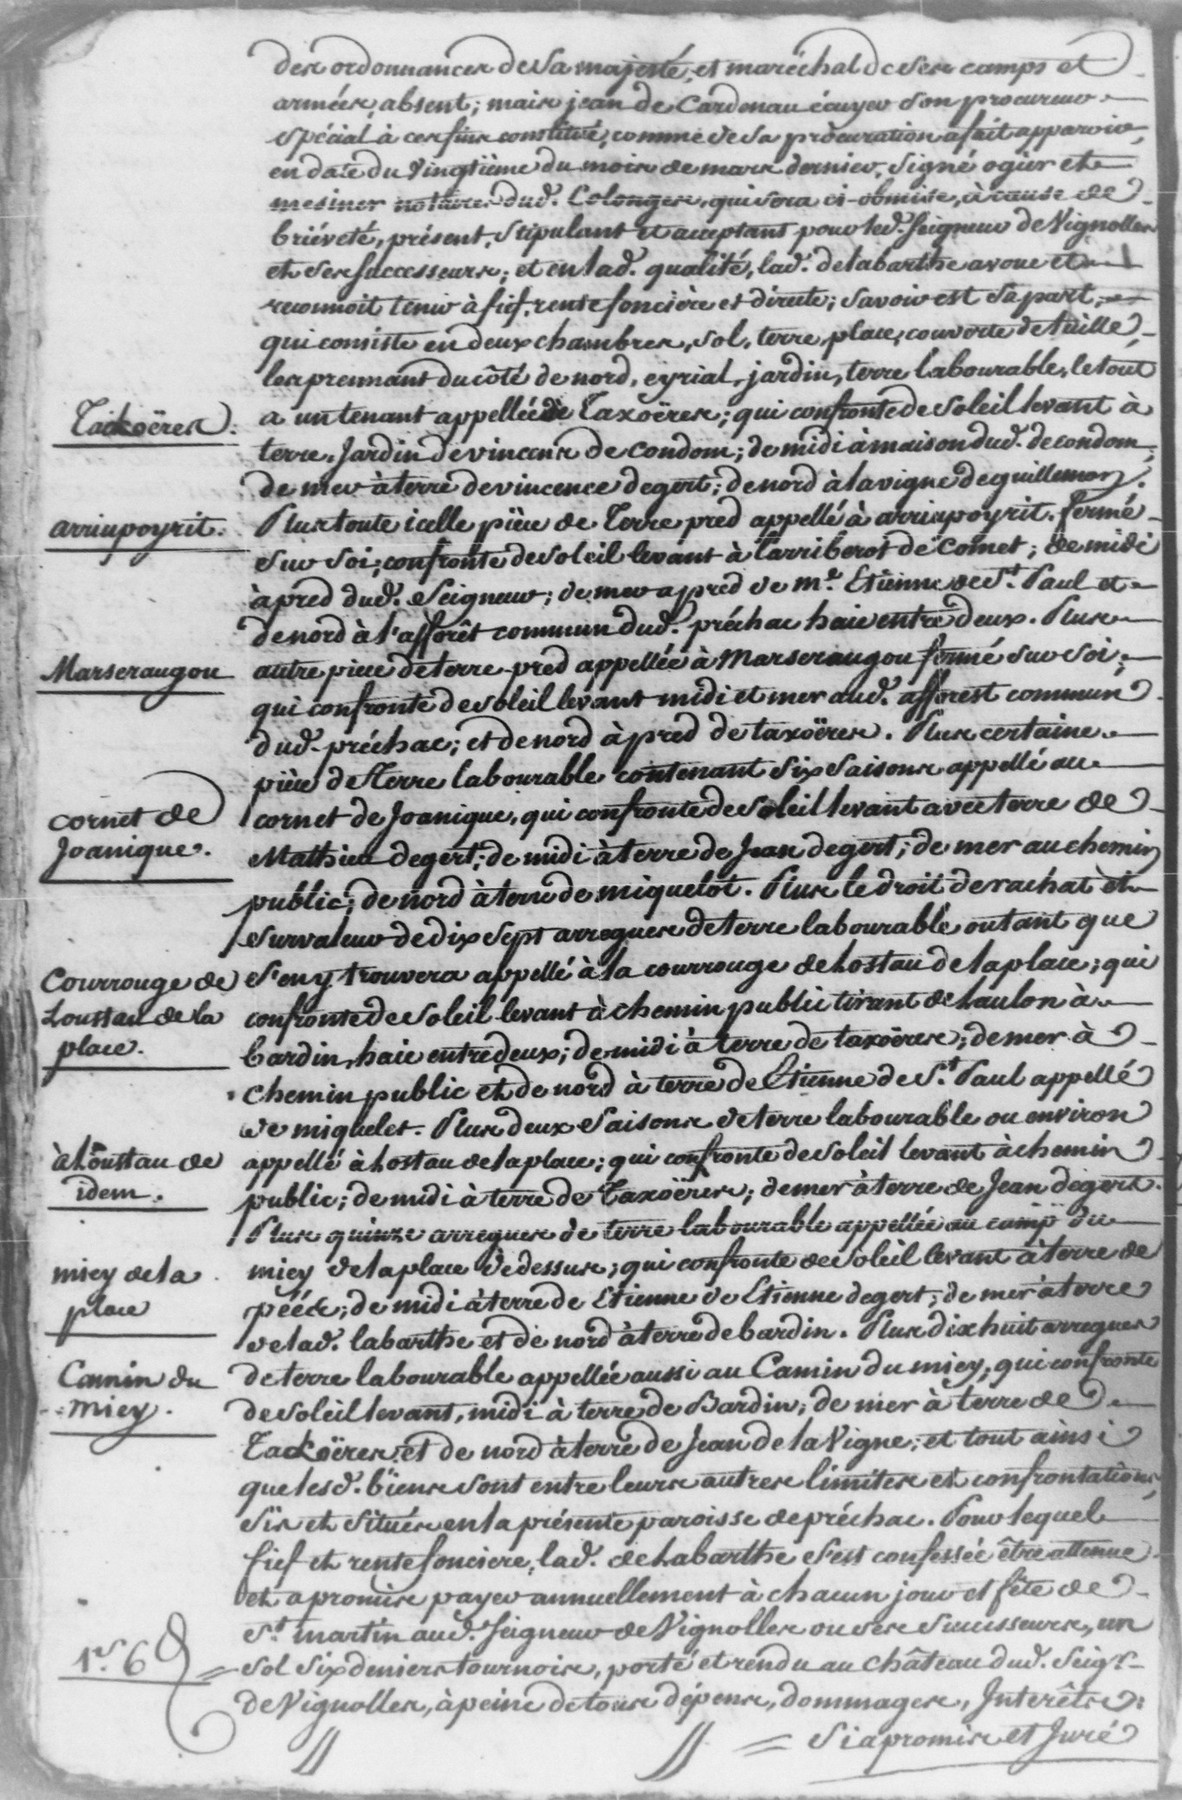 des ordonnances de Sa majesté, et maréchal de ses camps et
armées, absent; mais jean de Cardenau écuyer son procureur
spécial à ces fins constitué, comme de sa procuration a fait apparoir,
en date du vingtième du mois de mars dernier, signé ogier et
mesmer notaires dud. Colonges, qui sera ci-obmise, à cause de
briéveté, présent, stipulant et acceptant pour led. seigneur de Vignolles
et ses successeurs; et en lad. qualité, lad. de labarthe avoue et
reconnoit tenir à fief, rente foncière et directe; savoir est sa part,
qui consiste en deux chambres, sol, terre, place, couverte de tuille,
les prennant du côté de nord, eyrial, jardin, terre labourable, le tout
Tackoëres. a un tenant appellée de Taxoëres; qui confronte de soleil levant à
terre, Jardin de vincens de Condom; de midi à maison dud. de condom;
de mer à terre de vincence degert; de nord à la vigne de guillemon.
arriupoyrit. Plus toute icelle pièce de Terre pred appellé à arriupoyrit, fermé
sur soi; confronte de soleil levant à l'arriberot de Comet; de midi
à pred dud. Seigneur; de mer a pred de me. Etienne de St. Paul et
de nord à l'afforêt commun dud. préchac haie entre deux. Plus
Marseraugou autre pièce de terre pred appellée à Marseraugou fermé sur soi;
qui confronte de soleil levant midi et mer aud. afforest commun
dud. préchac; et de nord à pred de taxoëres. Plus certaine
pièce de Terre labourable contenant six saisons appellé au
cornet de cornet de Joanique, qui confronte de soleil levant avec terre de
Joanique. Mathieu degert; de midi à terre de Jean degert; de mer au chemin
public; de nord à terre de miquelot. Plus le droit de rachat et
survaleur de dix sept arregues de terre labourable ou tant que
Courrouge de s'en y trouvera appellé à la courrouge de hostau de la place; qui
Loustau de la confronte de soleil levant à chemin public tirant de haulon à
place. bardin, haie entre deux; de midi à terre de taxoëres; de mer à
chemin public et de nord à terre de Etienne de St. Paul appellé
de miquelet. Plus deux saisons de terre labourable ou environ
à Loustau de appellé à hostau de la place; qui confronte de soleil levant à chemin
idem. public; de midi à terre de Taxoëres; de mer à terre de Jean degert.
Plus quinze arregues de terre labourable appellée au camp du
miey de la miey de la place de dessus; qui confronte de soleil levant à terre de
place péés; de midi à terre de Etienne de Etienne degert; de mer à terre
de lad. labarthe et de nord à terre de bardin. Plus dix huit arregues
Camin du de terre labourable appellée aussi au Camin du miey; qui confronte
miey. de soleil levant, midi à terre de Bardin; de mer à terre de
Tackoëres, et de nord à terre de Jean de la Vigne; et tout ainsi
que lesd. biens sont entre leurs autres limites et confrontations,
sis et situés en la présente paroisse de préchac. Pour lequel
fief et rente fonciere, lad. de Labarthe s'est confessée être attenue
et a promis payer annuellement à chacun jour et fête de
St. martin aud. seigneur de Vignolles ou ses successeurs, un
1s. 6d sol six deniers tournois, porté et rendu au château dud. Seigr.
de Vignolles, à peine de tous dépens, dommages, Interêts;
si a promis et Juré